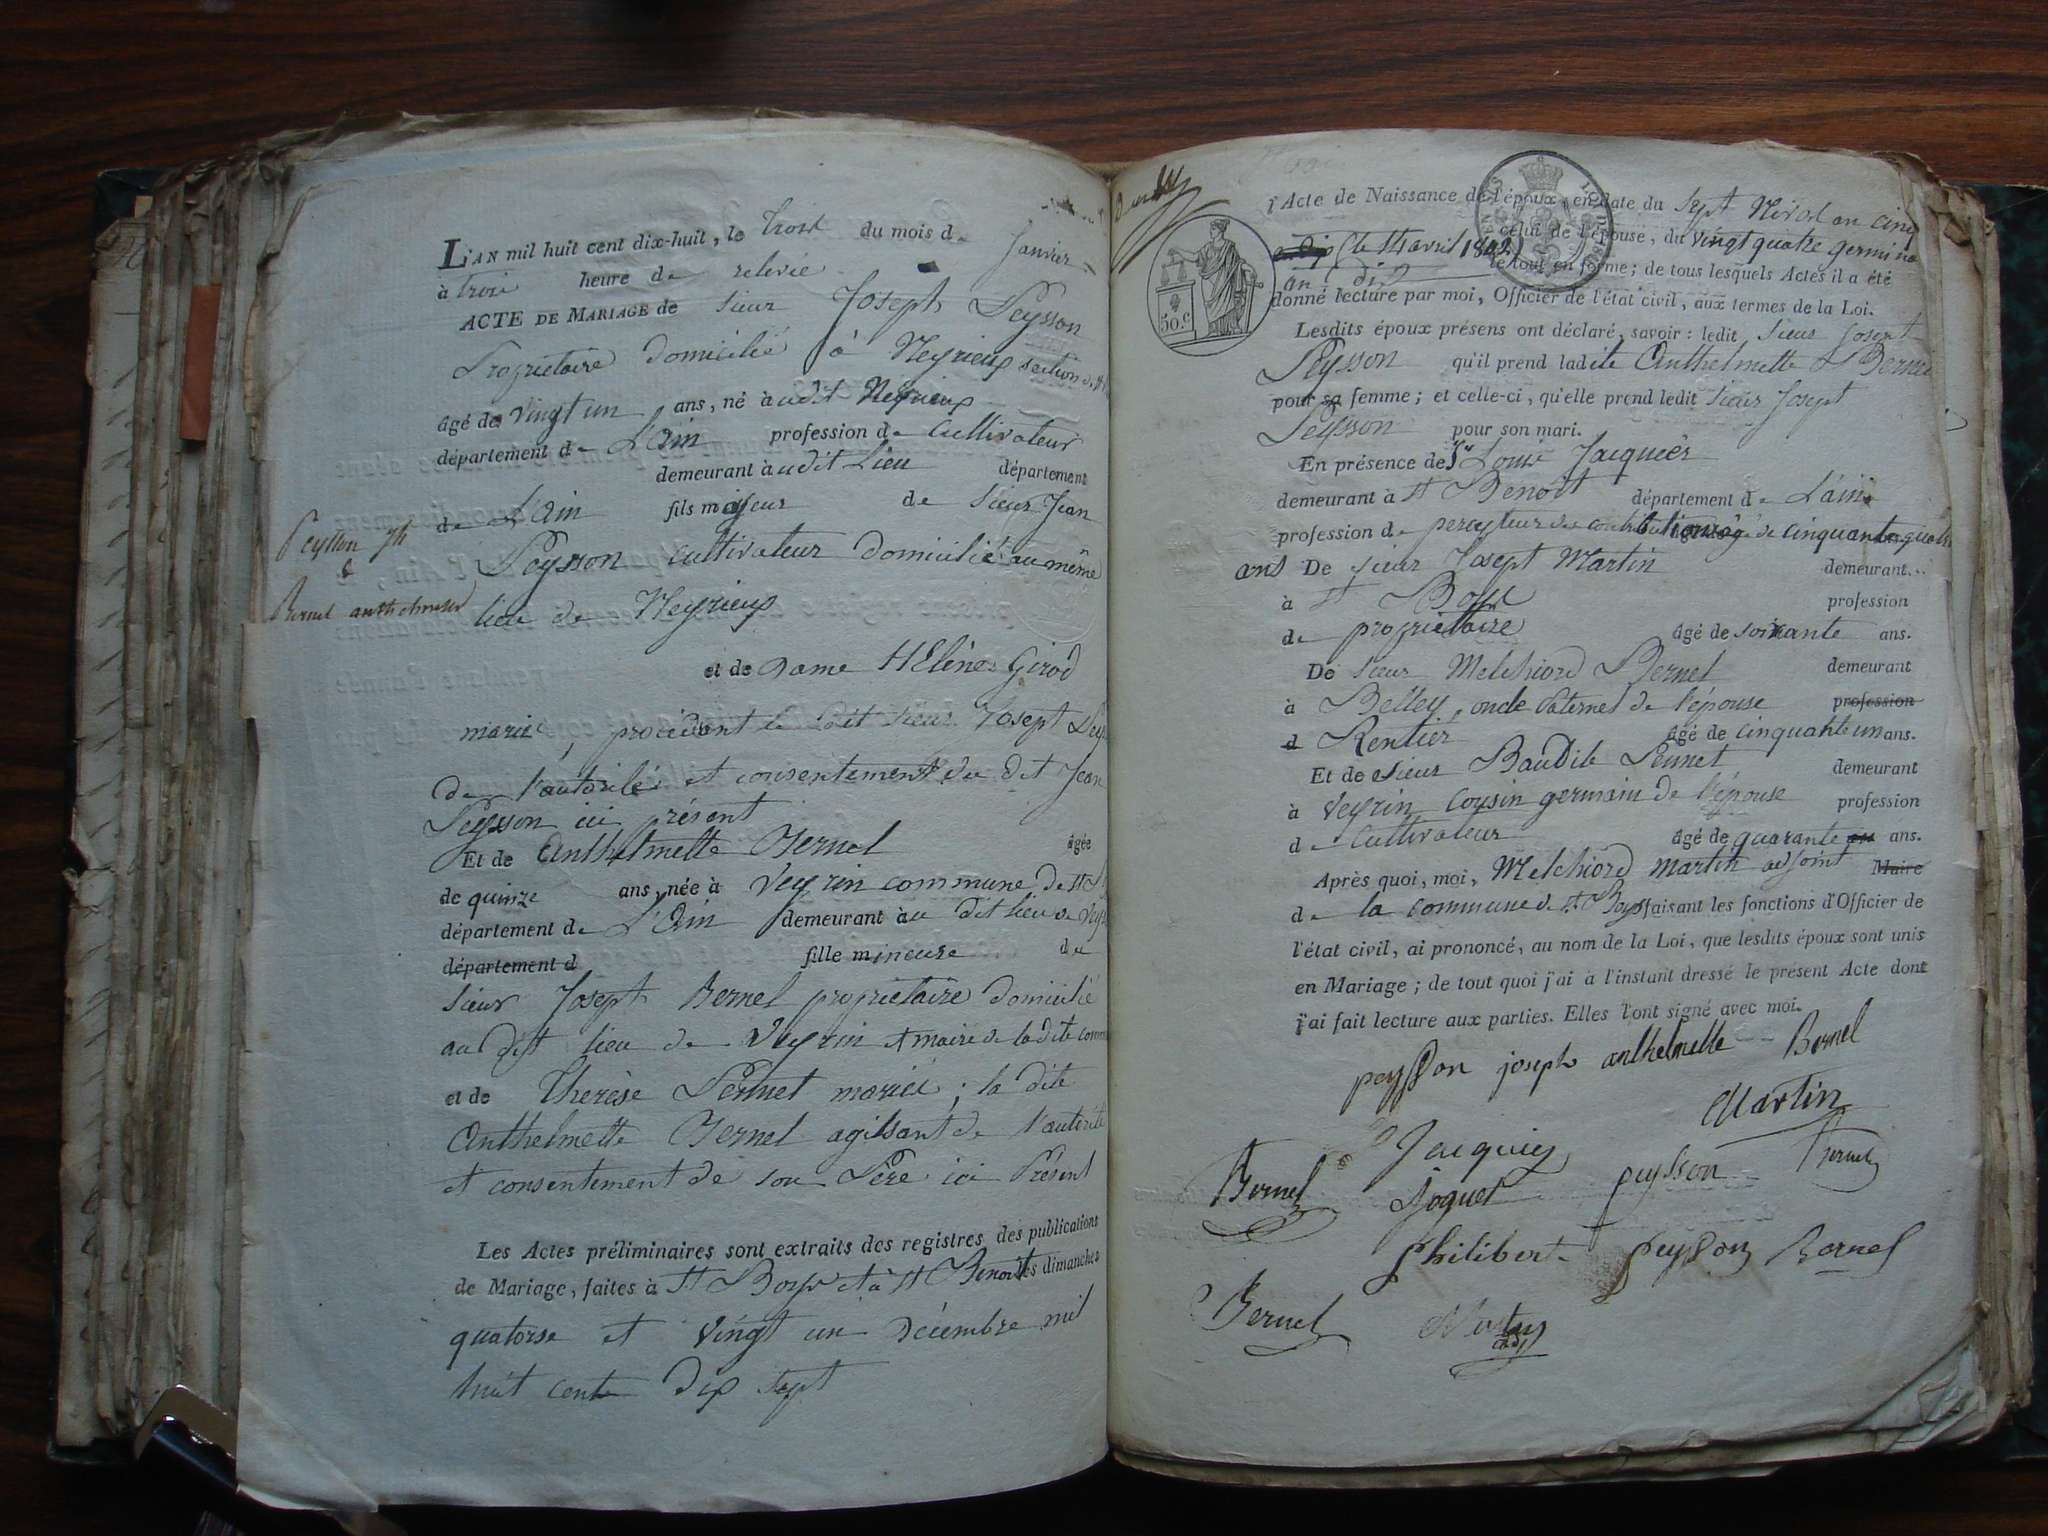 L'AN mil huit cent dix-huit, le trois du mois de Janvier
à trois heure de relevée
ACTE DE MARIAGE de Sieur Joseph Peysson
Proprietaire domicilié à Neyrieux section de
âgé de vingt un ans, né audit Neyrieux
département de L'Ain profession de cultivateur
demeurant audit Lieu département
de L'Ain fils majeur de Sieur Jean
Peysson cultivateur domicilié au même
lieu de Neyrieux
et de Dame HElène Girod
mariés, procédant le dit Sieur Josept Peys
de l'autorité et consentement du dit Jean
Peysson ici présent
Et de Anthelmette Bernel âgée
de quinze ans, née à Veyrin commune de St
département de L'Ain demeurant au dit lieu de Vey
département d fille mineure de
Sieur Josept Bernel proprietaire domicilié
au dit lieu de Veyrin et maire de ladite comm
et de Therèse Pernet mariés; la dite
Anthelmette Bernel agissant de l'autorité
et consentement de son Père ici Présent
Les Actes préliminaires sont extraits des registres des publications
de Mariage, faites à St Boys et à St Benoit les dimanches
quatorse et vingt un décembre mil
huit cent dix sept
Peysson Jh
&
Bernel anthelmette
l'Acte de Naissance de l'époux, en date du sept Nivos an cinq
celui de l'épouse, du vingt quatre germinal
(le 14 avril 1802)
an dix le tout en forme; de tous lesquels Actes il a été
donné lecture par moi, Officier de l'état civil, aux termes de la Loi.
50.c
Lesdits époux présens ont déclaré, savoir: ledit Sieur Josept
Peysson qu'il prend ladite Anthelmette Bernel
pour sa femme; et celle-ci, qu'elle prend ledit Sieur Josept
Peysson pour son mari.
En présence de Sr Louis Jacquier
demeurant à St Benoit département de L'ain
profession de percepteur des contributions âgé de cinquante quatre
ans De sieur Josept Martin demeurant
à St Boys profession
de proprietaire âgé de soixante ans.
De Sieur Melchiord Bernel demeurant
à Belley, oncle Paternel de l'épouse profession
d Rentier âgé de cinquante un ans.
Et de Sieur Baudile Pernet demeurant
à Veyrin cousin germain de l'épouse profession
de Cultivateur âgé de quarante ans.
Après quoi, moi, Melchiord Martin adjoint Maire
de la commune de St Boys faisant les fonctions d'Officier de
l'état civil, ai prononcé, au nom de la Loi, que lesdits époux sont unis
en Mariage; de tout quoi j'ai à l'instant dressé le présent Acte dont
j'ai fait lecture aux parties. Elles l'ont signé avec moi.
peysson joseph anthelmette Bernel
Martin
Jacquier
Bernel Joquet peysson Pernet
Philibert peysson Bernel
Bernel Martin
adj